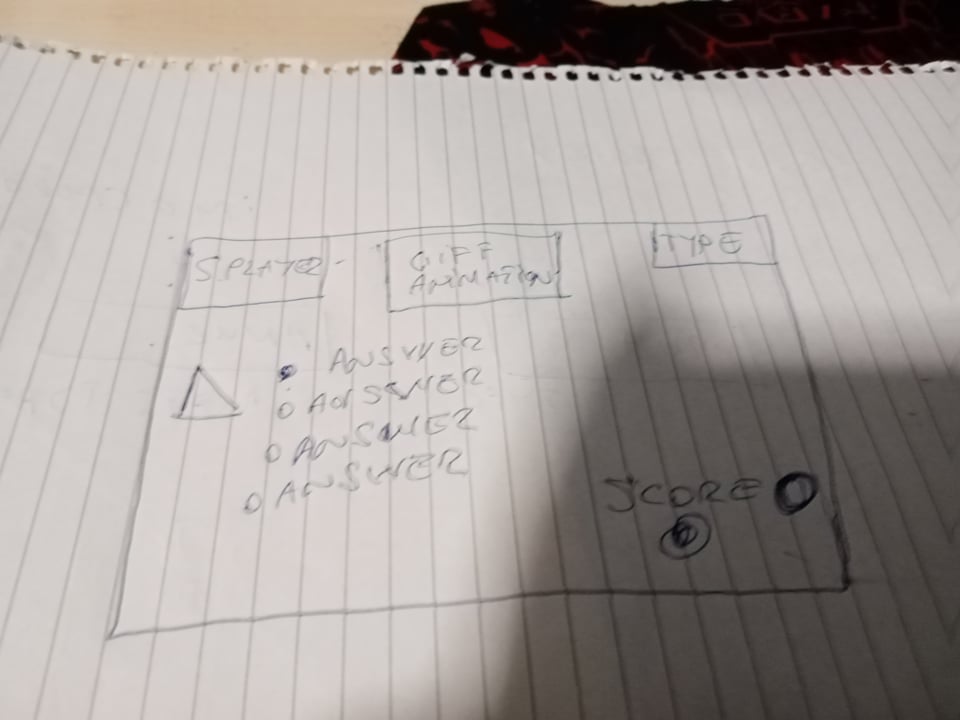 S.PLAYER
GIFF
ANIMATION
TYPE
ANSWER
ANSWER
ANSWER
ANSWER
SCORE